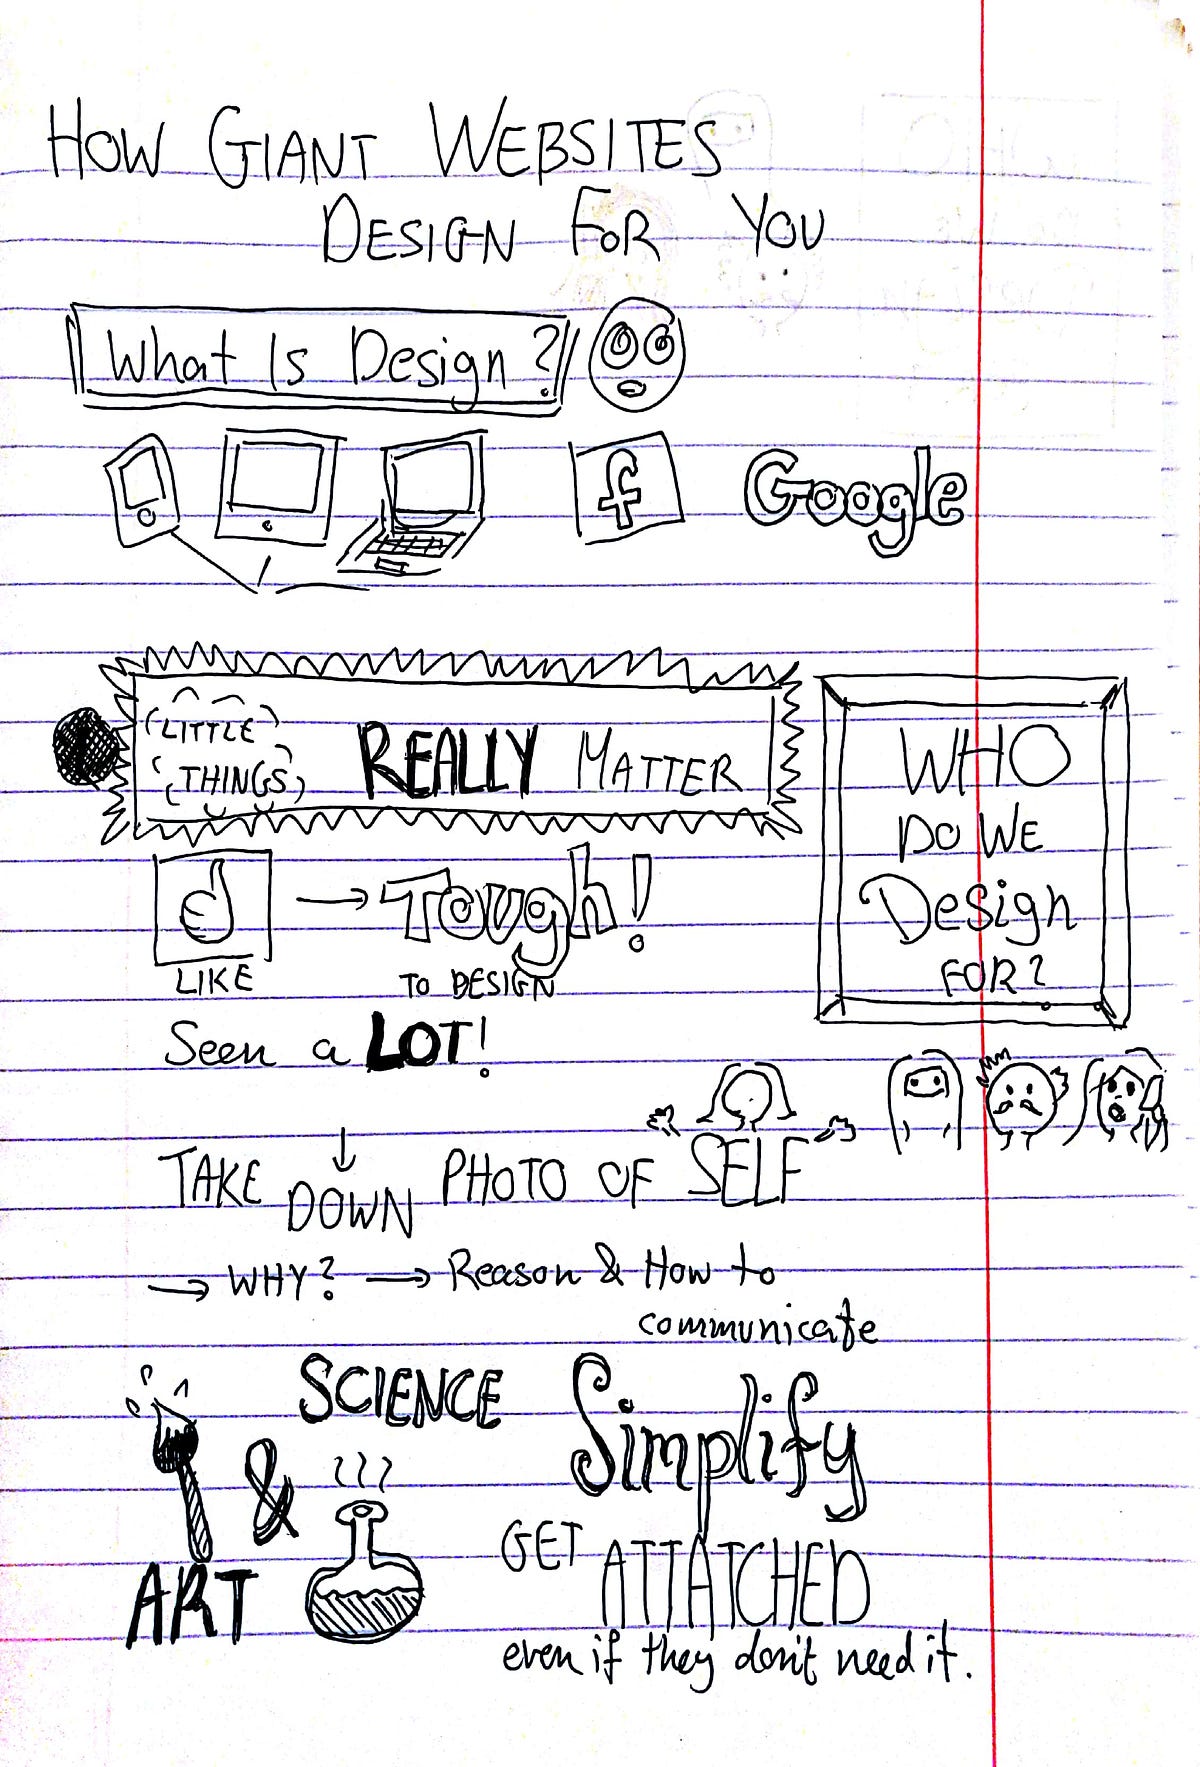 HOW GIANT WEBSITES
DESIGN FOR YOU
What Is Design?
f Google
LITTLE
THINGS REALLY MATTER
WHO
DO WE
Design
FOR?
Tough!
LIKE TO DESIGN
Seen a LOT!
TAKE DOWN PHOTO OF SELF
→ WHY? → Reason & How to
communicate
SCIENCE
&
ART
Simplify
GET ATTATCHED
even if they don't need it.